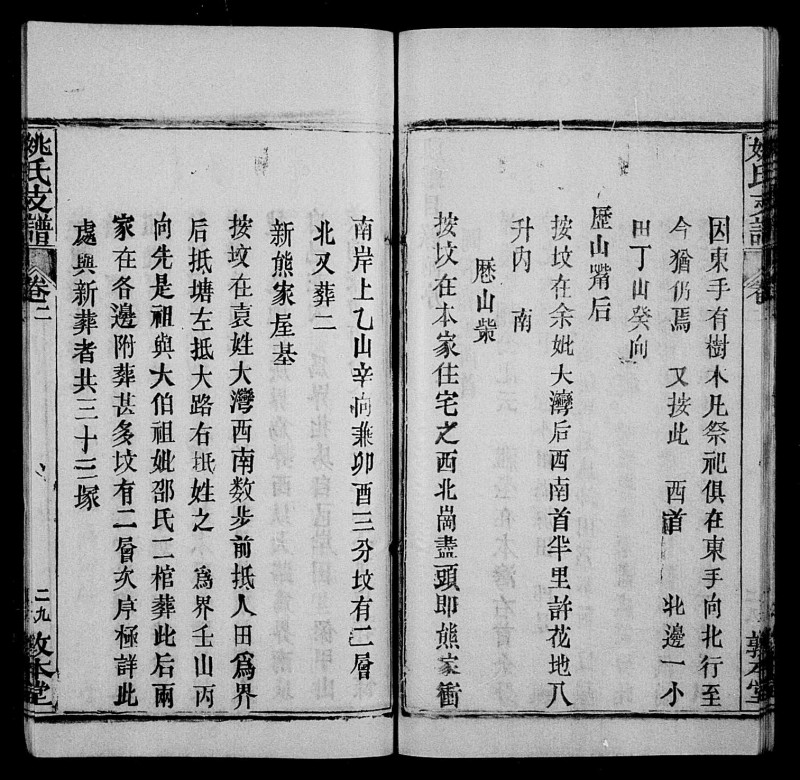 因東手有樹木凡祭祀俱在東手向北行至
今猶仍焉 又按此 西首 北邊一小
田丁山癸向
歷山嘴后
按坟在余妣大灣后西南首半里許花地八
升內 南
歷山柴
按坟在本家住宅之西北崗盡頭即熊家衝
南岸上乙山辛向兼卯酉三分坟有二層
北又葬二
新熊家屋基
按坟在袁姓大灣西南数步前抵人田爲界
后抵塘左抵大路右抵姓之 爲界壬山丙
向先是祖與大伯祖妣邵氏二棺葬此后兩
家在各邊附葬甚多坟有二層次序極詳此
處與新葬者共三十三塚
姚氏支譜
卷二
二九
敦本堂